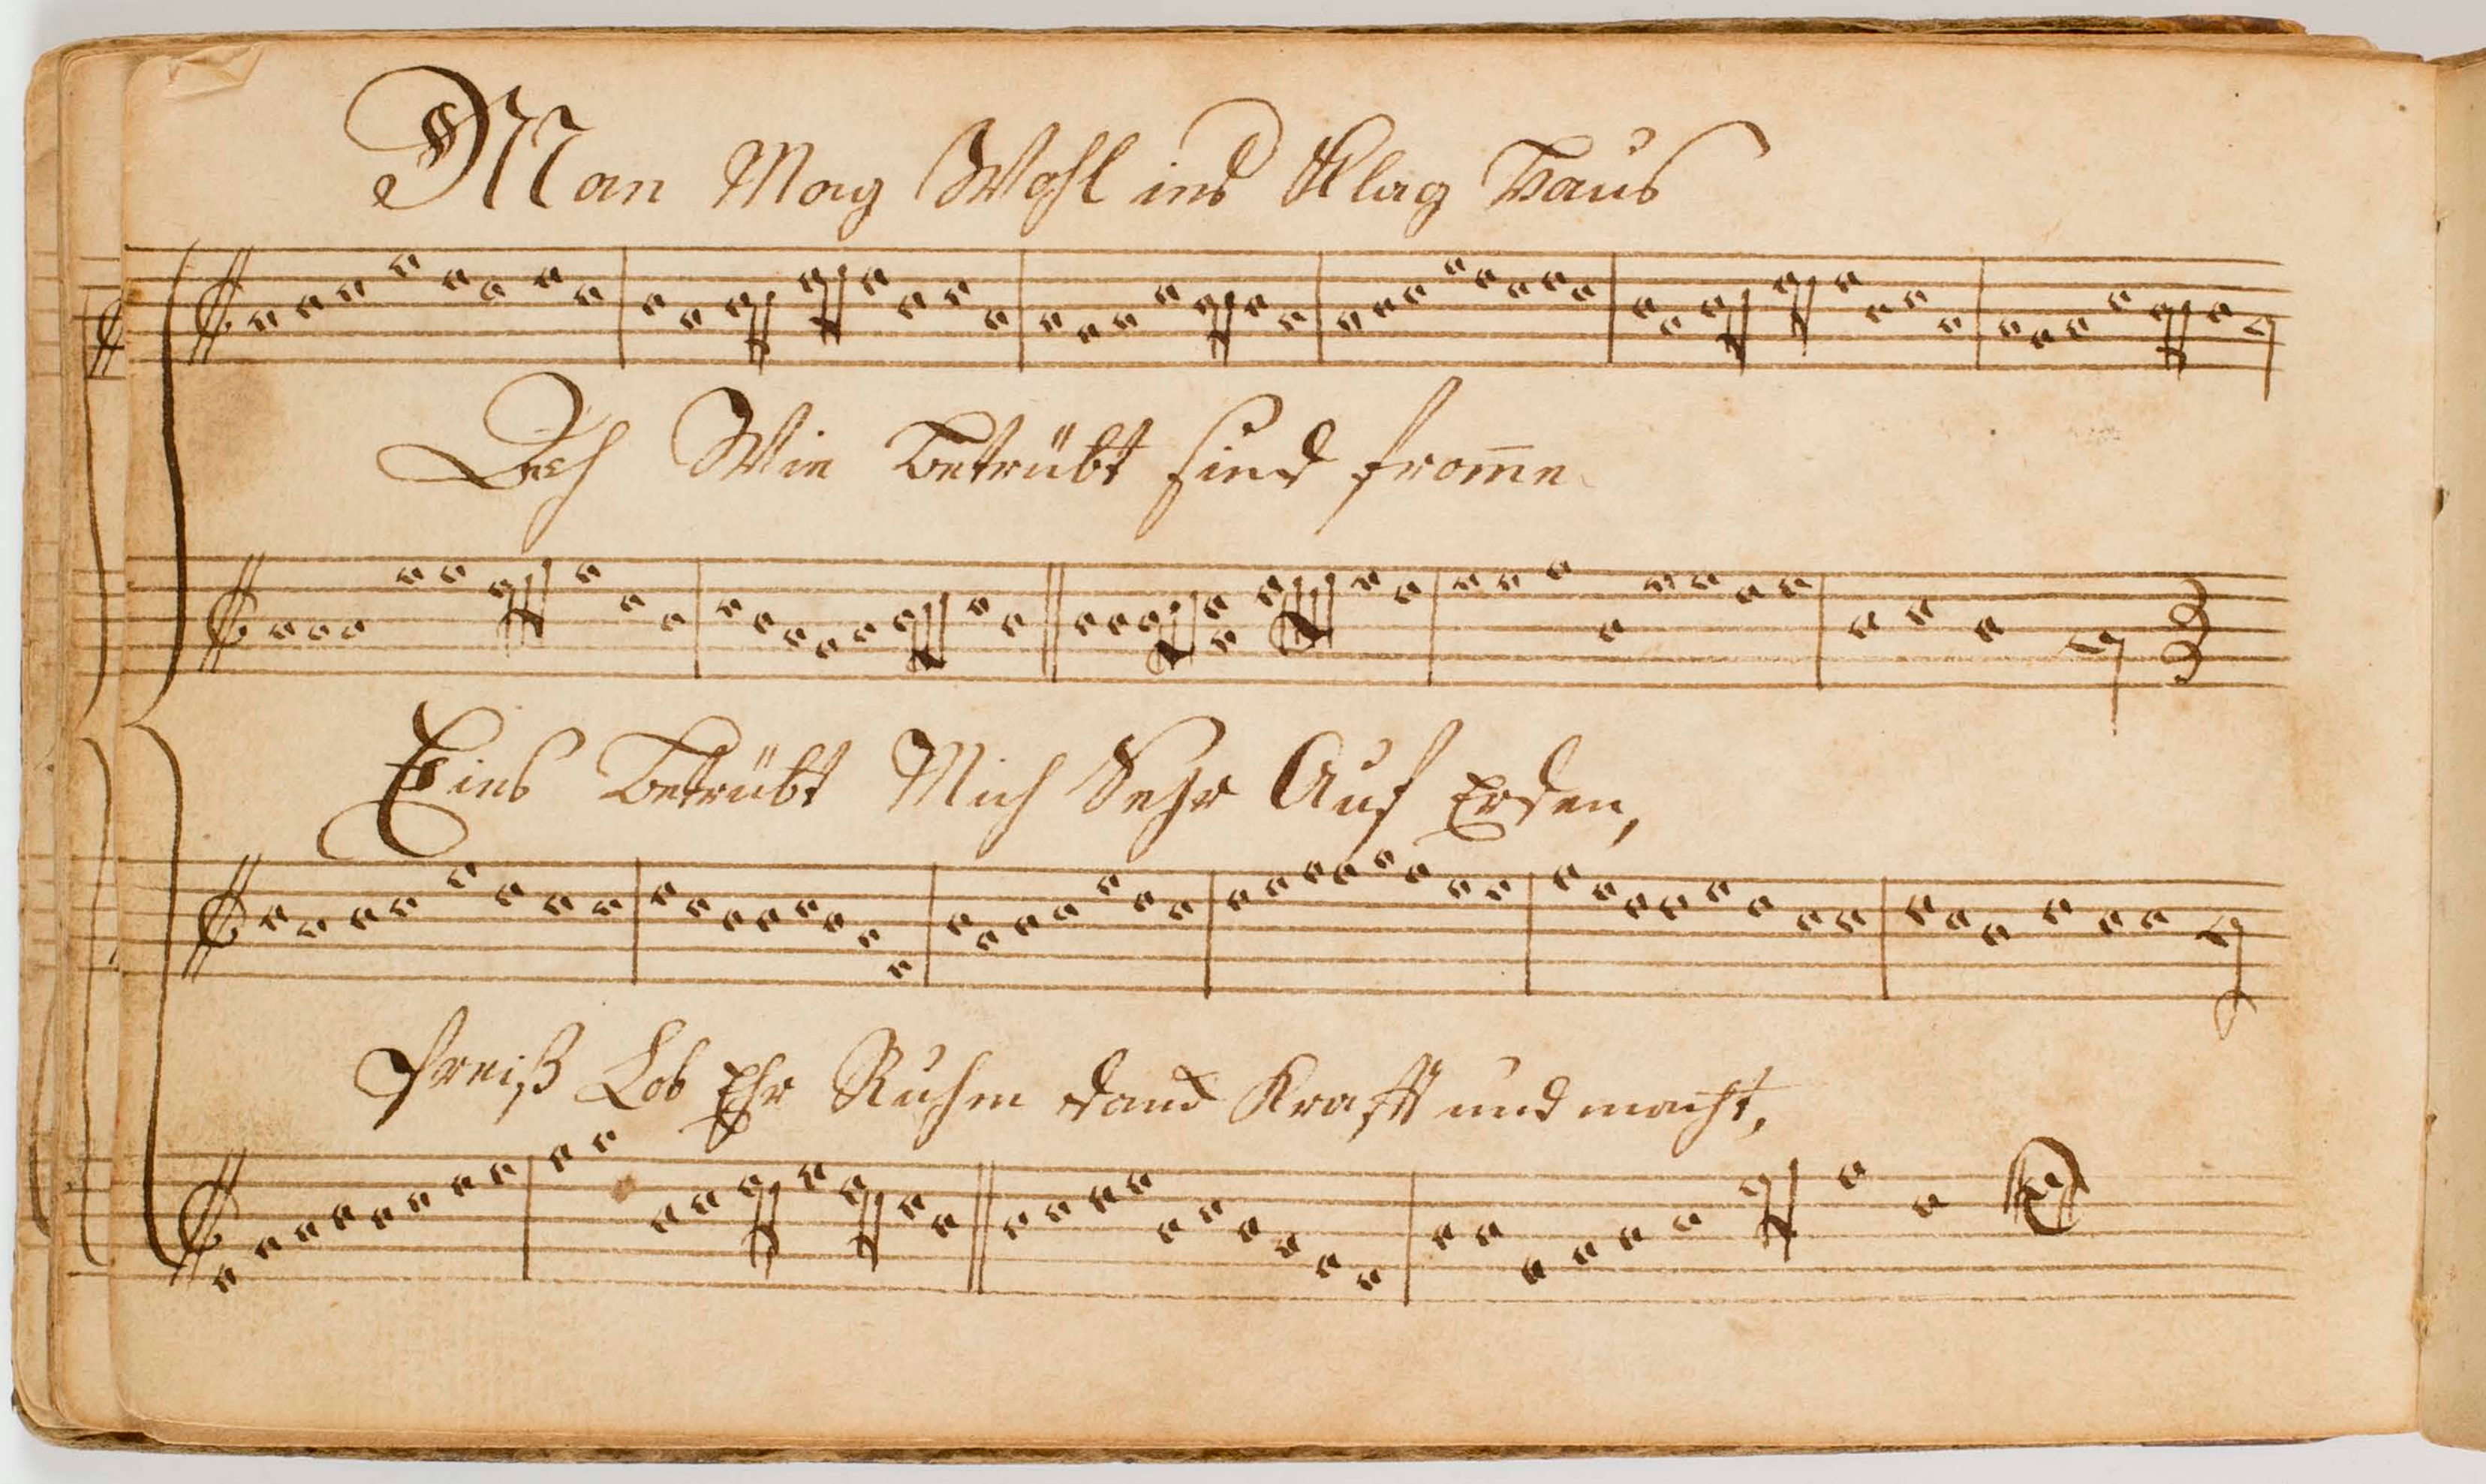 Man Mag Wohl ins Klag Haus
Ach Wie Betrübt sind from̅e
Eins Betrübt Mich Sehr Auf Erden,
Preiß Lob Ehr Ruhm danck Krafft und macht,